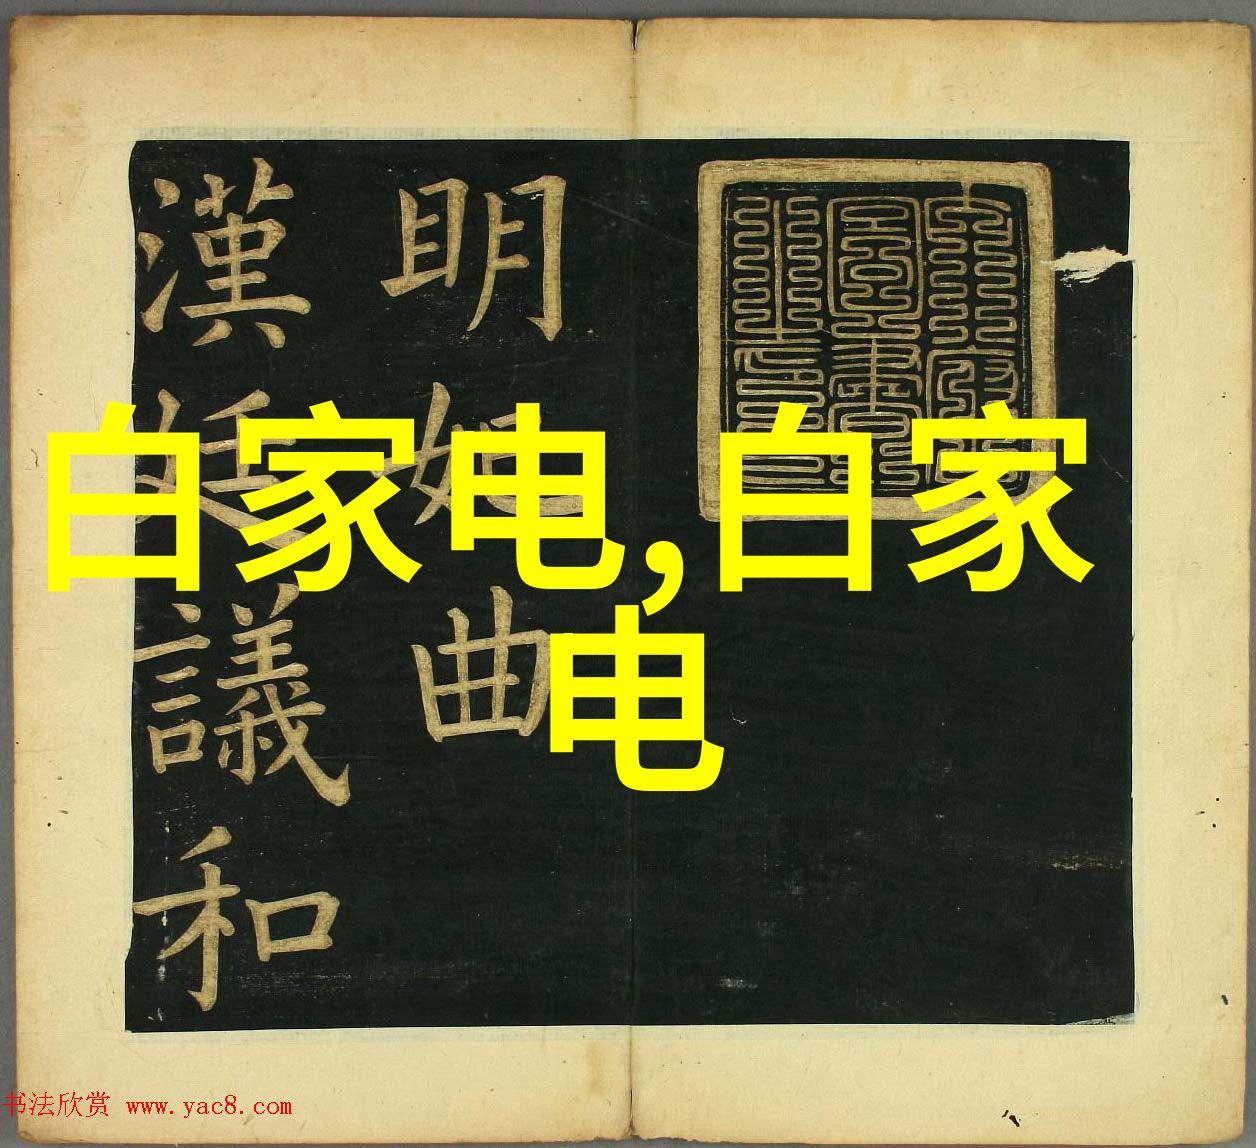 白家电,白家
电
明妃曲
漢廷議和
书法欣赏 www.yac8.com